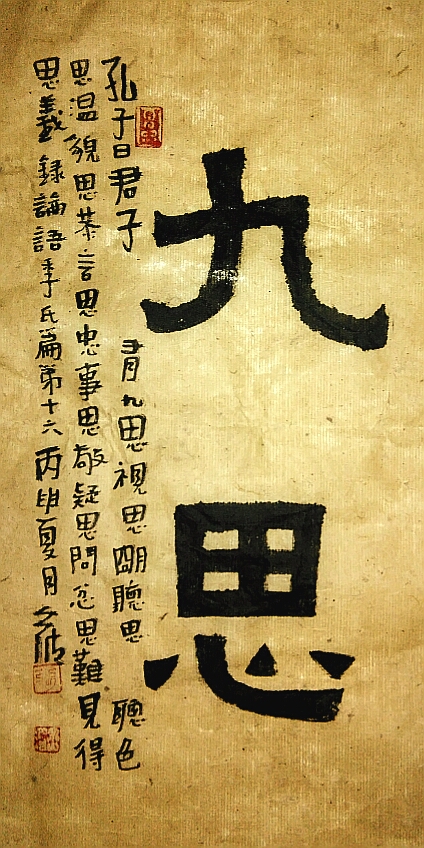 九思
孔子曰君子有九思視思朙聽思聰色
思温貌思恭言思忠事思敬疑思問忿思難見得
思義録論語季氏篇第十六丙申夏月